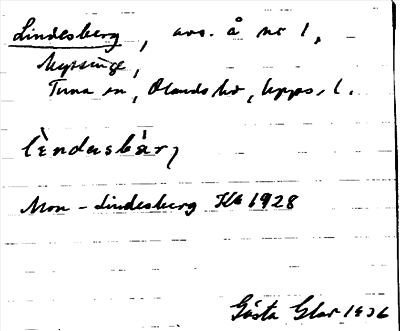 Lindesberg, avs. å nr 1,
Mysinge,
Tuna sn, Olands hd, Upps. l.
lèndasbàrj
Mon - Lindesberg Hk 1928
Gösta Glar 1936